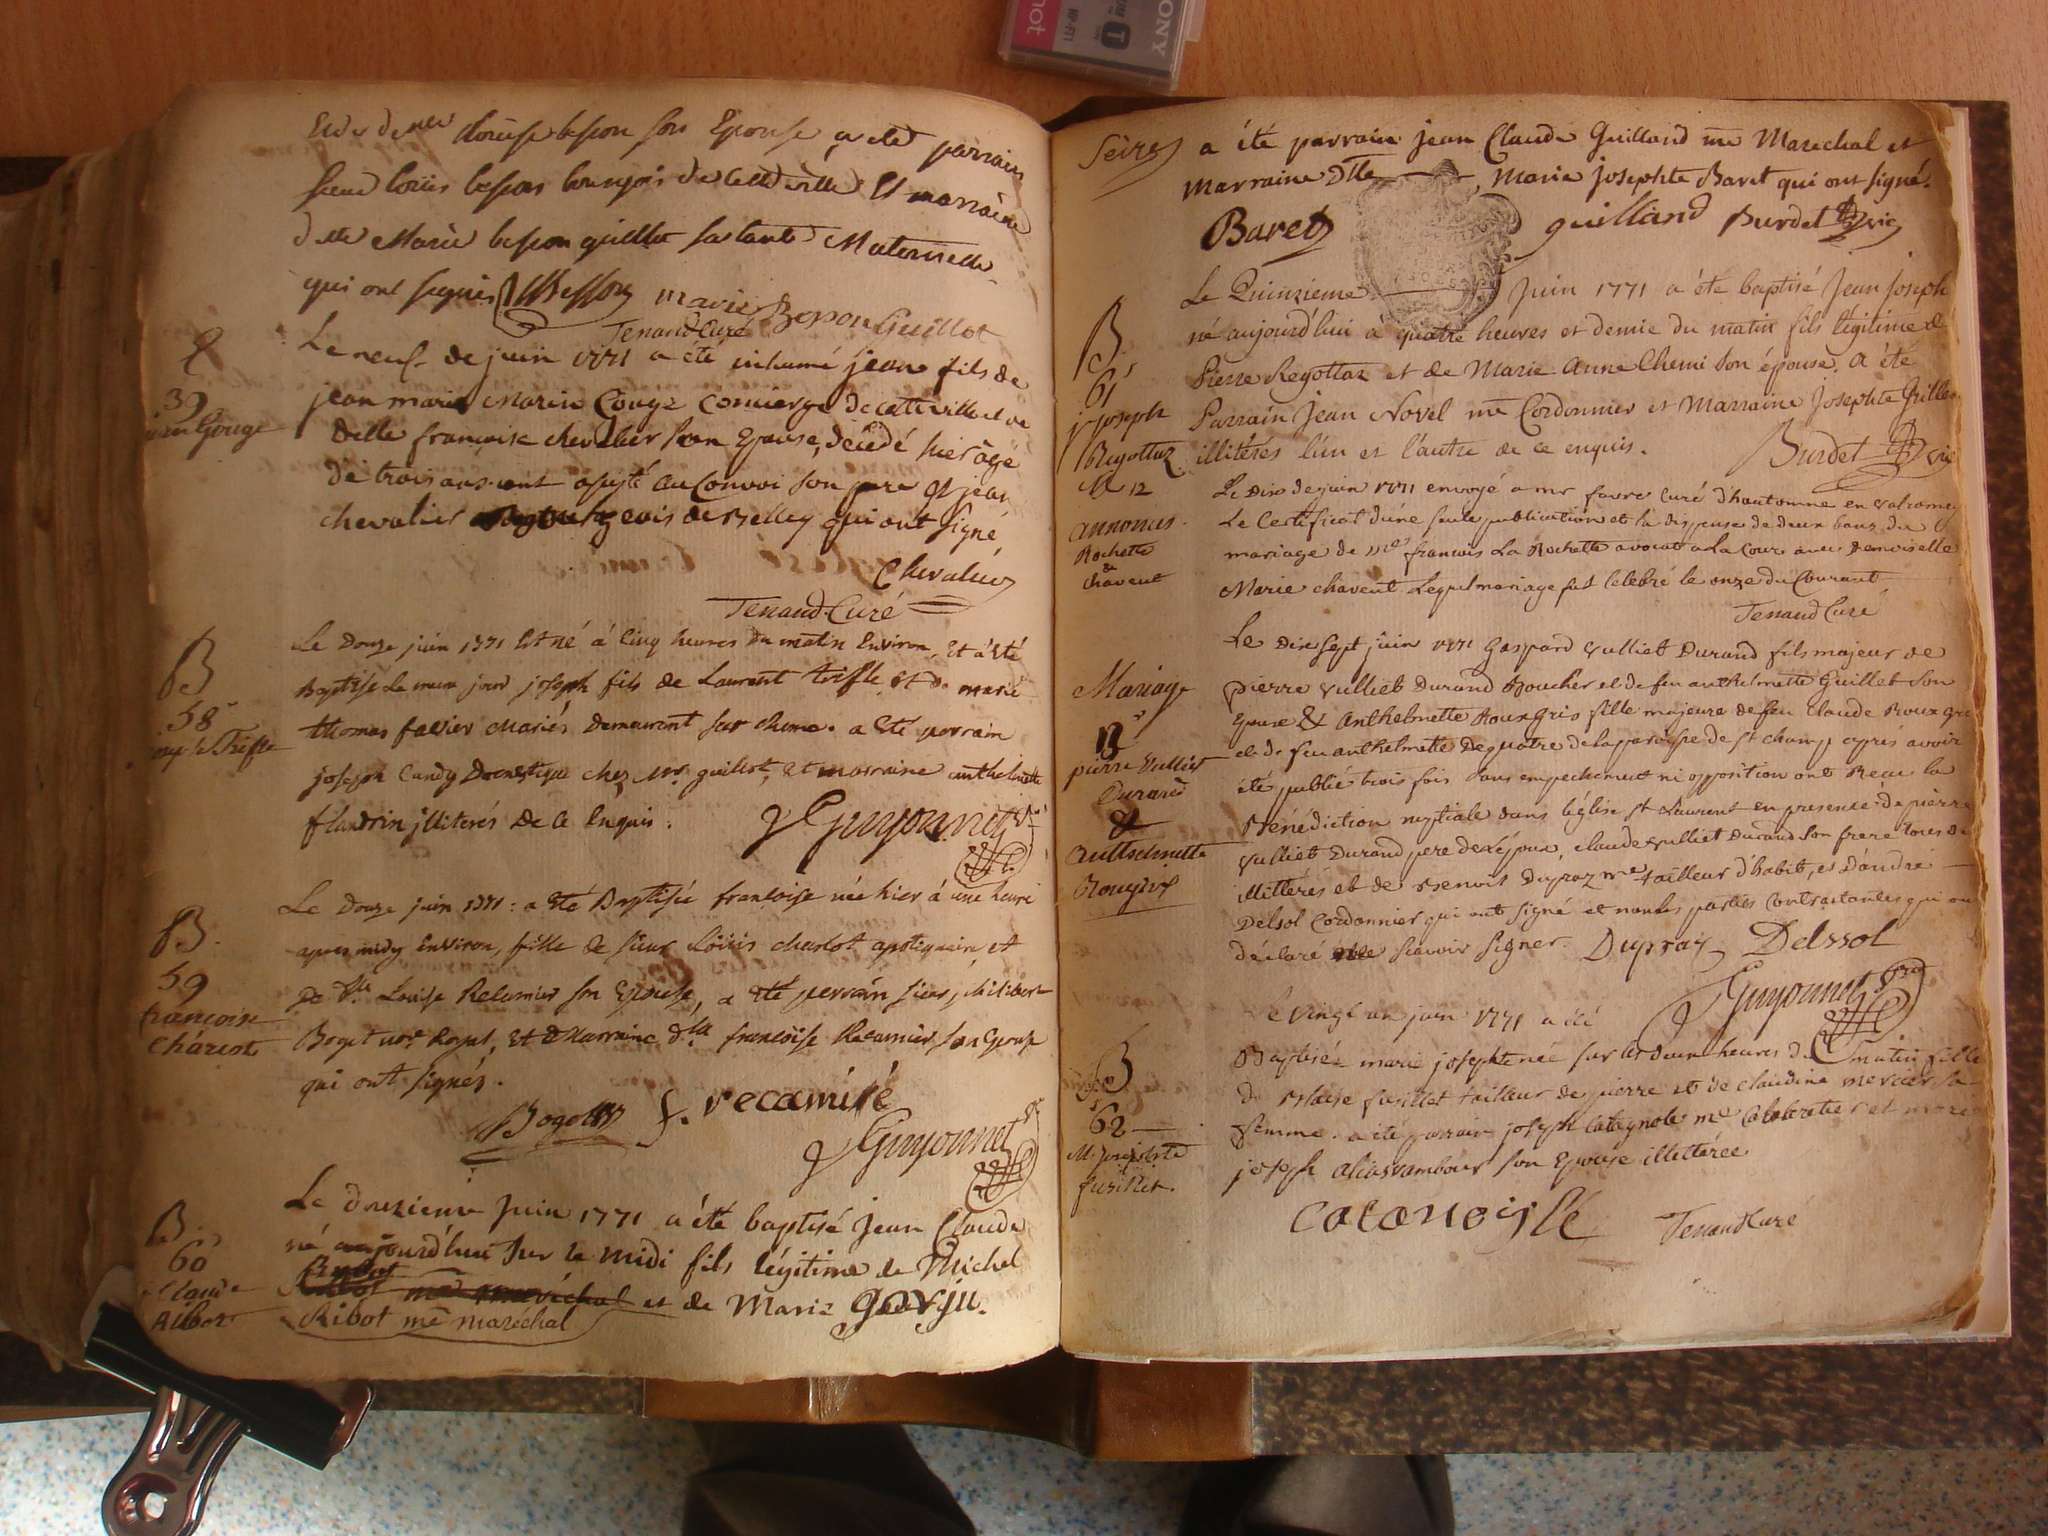 SONY
MP-FI1
Louise besson son Epouse, a eté parrain
sieur loüis besson bourgeois de cette ville Et marraine
delle Marie besson guillot sa tante Maternelle
qui ont signés Besson marie Besson Guillot
Tenand Curé
39
jean Gouge
Le neuf de juin 1771 a été inhumé jean fils de
jean marie Marin Gouge concierge de cette ville et de
Delle françoise chevalier son Epouse, décédé hier âgé
de trois ans. ont assisté au Convoi son pere et jean
chevalier Bourgeois de Belley qui ont signé
Chevalier
Tenand Curé
B
58
joseph Trifle
Le Douze juin 1771 Est né à Cinq heures Du matin Environ, Et à Eté
Baptisé Le meme jour joseph fils de Laurent trifle, Et de marie
thomas favier Mariés Demeurant sur chême. a Eté parrain
joseph Candy Domestique chez Mr. guillot, Et marraine anthelmette
flandrin jlliterés De Ce Enquis.
Guyonnet
B.
59
francoise
Charlot
Le Douze juin 1771: a Eté Baptisée francoise née hier à une heure
apres midy Environ, fille de sieur Loüis charlot apotiquaire, et
De dlle Louise Recamier son Epouse, a Eté parrain sieur philibert
Boget nore Royal, Et Marraine dlle francoise Recamier son Epouse
qui ont signés.
Boget f. recamié
Guyonnet
B.
60
j Claude
Ribot
Le douzieme Juin 1771 a été baptisé Jean Claude
né aujourd'hui sur le midi fils légitime de Michel
et de Marie Gorju.
Ribot me maréchal
a été parrain jean Claude Guilland me Marechal et
Marraine Dlle Marie Josephte Baret qui ont signé.
Baret guilland Burdet vic
B
61
j joseph
Regottaz
Le Quinzieme Juin 1771 a été baptisé Jean Joseph
né aujourd'hui à quatre heures et demie du matin fils légitime de
Pierre Regottaz et de Marie Anne Chemi son épouse. a été
Parrain Jean Novel me Cordonnier et Marraine Josephte Grillet
illitérés l'un et l'autre de ce enquis. Burdet vic
12
annonces
Rochette
&
chavent
Le Dix de juin 1771 envoyé a mr favre Curé d'hautonne en valromey
Le Certificat d'une seule publication et la dispense de deux bans du
mariage de me francois La Rochette avocat a la Cour avec Demoiselle
Marie chavent Lequel mariage fut Celebré le onze du Courant
Tenand Curé
Mariage
12
pierre Vulliet
Durand
&
Anthelmette
Rougris
Le Dix sept juin 1771 Gaspard vulliet Durand fils majeur de
pierre vulliet Durand Boucher et de feu anthelmette Guillet son
Epouse & Anthelmette Rouxgris fille majeure de feu Claude Roux gris
et de feu anthelmette Dequatre de la paroisse de st champ apres avoir
été publié trois fois sans empechement ni opposition ont Recu la
Bénédiction nuptiale dans l'église st Laurent en presence de pierre
vulliet Durand pere de l'époux, claude vulliet Durand son frere tous deux
illittérés et de Benoit Dupraz me tailleur d'habit, et d'andré
Delsol Cordonnier qui ont signé et non les parties Contractantes qui ont
déclaré ne scavoir signer. Dupraz Delssol
Guyonnet
B
62
M. josephte
fusillet.
Le vingt un juin 1771 a été
Baptisée marie josephte née sur les deux heures du matin fille
de Blaise fusillet tailleur de pierre et de claudine mercier sa
femme. a été parrain joseph Catagnole me Cabaretier et marie
joseph alias vambour son Epouse illittérée
Tenand Curé